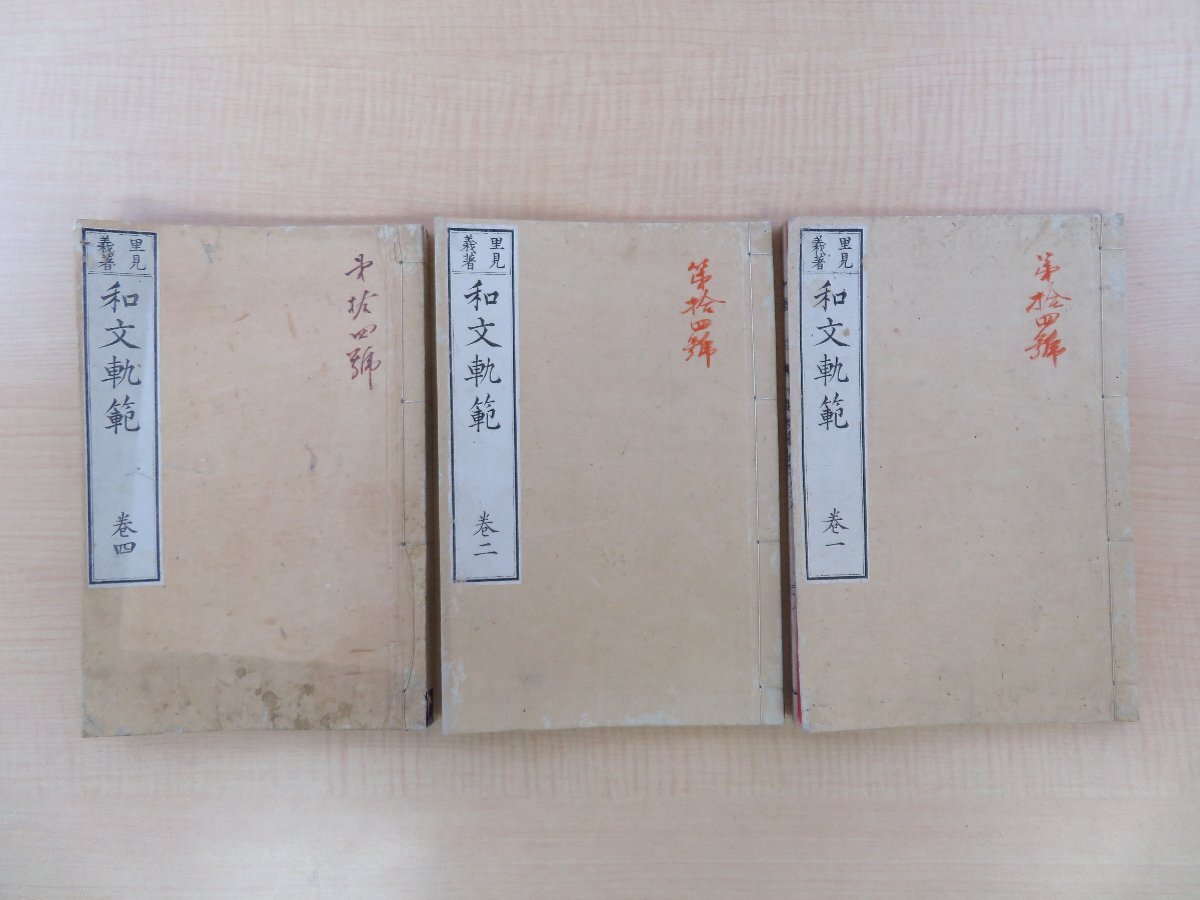 里見
義著
和文軌範
巻一
第拾四號
里見
義著
和文軌範
巻二
第拾四號
里見
義著
和文軌範
巻四
第拾四號